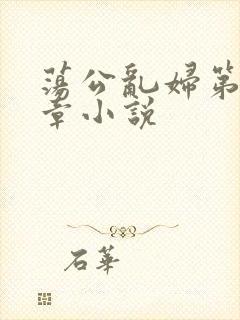 蕩公亂婦第
章小説
石華